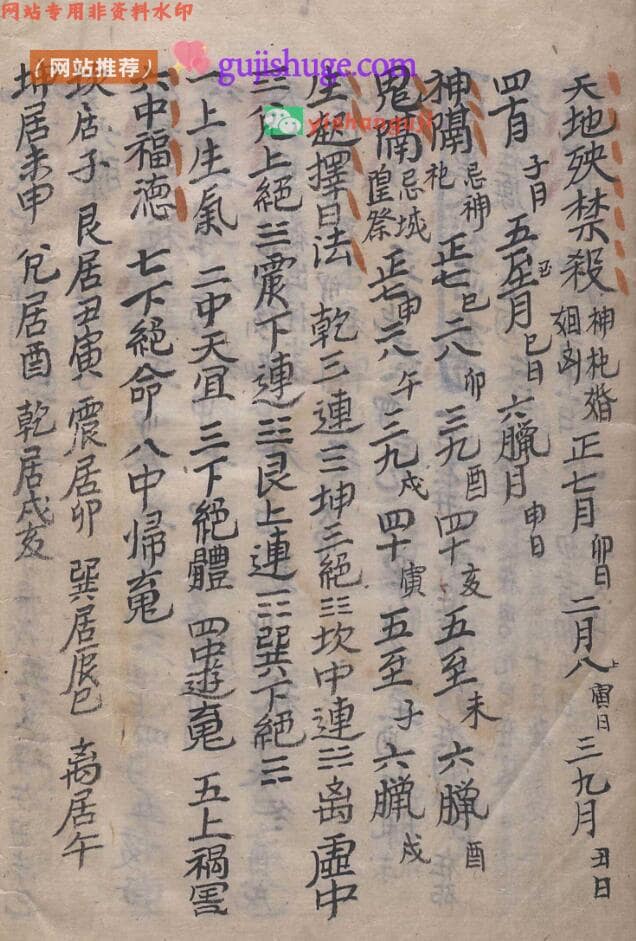 网站专用非资料水印
(网站推荐)
gujishuge.com
yishanguji
天地殃禁殺 神祀婚姻凶 正七月 卯日 二月八 寅日 三九月 丑日
四十月 子日 五至月 巳日 六臘月 申日
神隔 忌神祀 正七 巳 二八 卯 三九 酉 四十 亥 五至 未 六臘 酉
鬼隔 忌城隍祭 正七 申 二八 午 三九 戌 四十 寅 五至 子 六臘 戌
生氣擇日法 乾三連☰坤三絕☷坎中連☵离虛中
☲兌上絕☱震下連☳艮上連☶巽下絕☴
一上生氣 二中天宜 三下絕體 四中遊䰟 五上禍害
六中福德 七下絕命 八中帰䰟
坎居子 艮居丑寅 震居卯 巽居辰巳 离居午
坤居未申 兌居酉 乾居戌亥